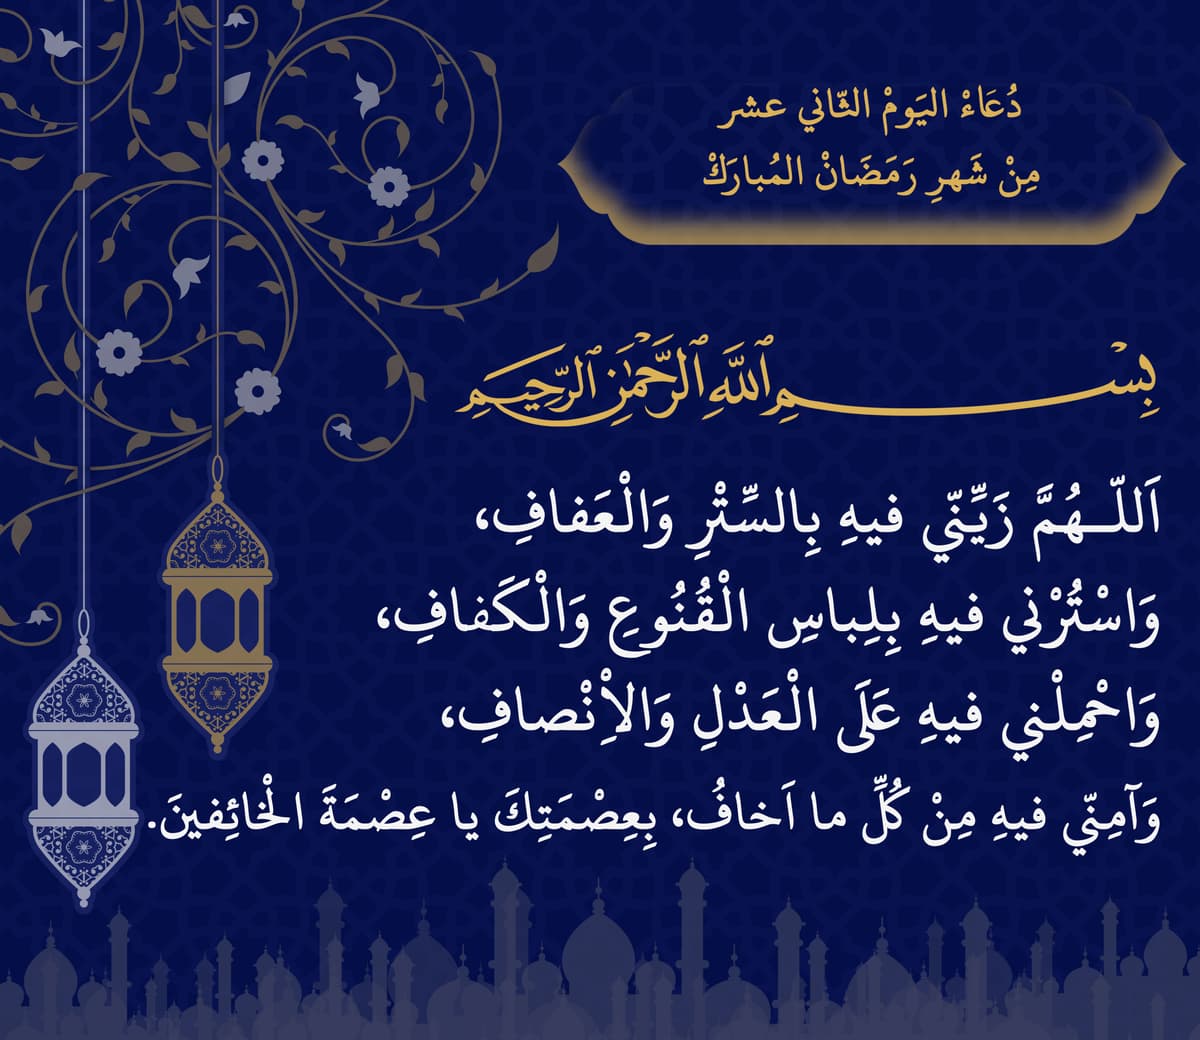 دُعَاءْ اليَومْ الثّاني عشر
مِنْ شَهرِ رَمَضَانْ المُبارَكْ
بِسْمِ ٱللَّهِ ٱلرَّحْمَٰنِ ٱلرَّحِيمِ
اَللّـهُمَّ زَيِّنّي فيهِ بِالسِّتْرِ وَالْعَفافِ،
وَاسْتُرْني فيهِ بِلِباسِ الْقُنُوعِ وَالْكَفافِ،
وَاحْمِلْني فيهِ عَلَى الْعَدْلِ وَالاِْنْصافِ،
وَآمِنّي فيهِ مِنْ كُلِّ ما اَخافُ، بِعِصْمَتِكَ يا عِصْمَةَ الْخائِفينَ.